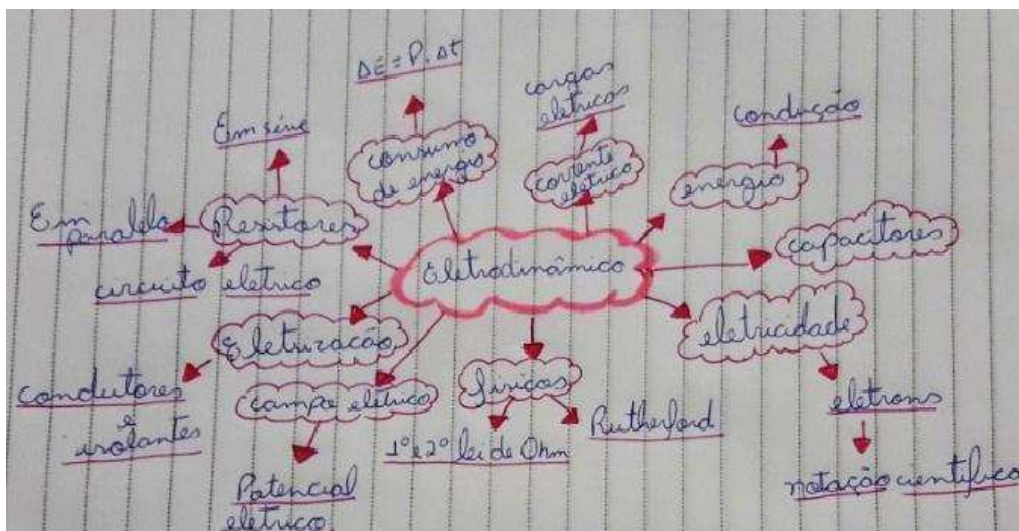 ΔE = P. Δt
cargas
eletricas
condução
Em série
consumo
de energia
corrente
eletrica
energia
Em
paralelo
Resistores
capacitores
Eletrodinâmica
circuito eletrico
eletricidade
Eletrização
condutores
e
isolantes
campo elétrico
físicos
eletrons
1º e 2º lei de Ohm
Rutherford
Potencial
eletrico
notação científica